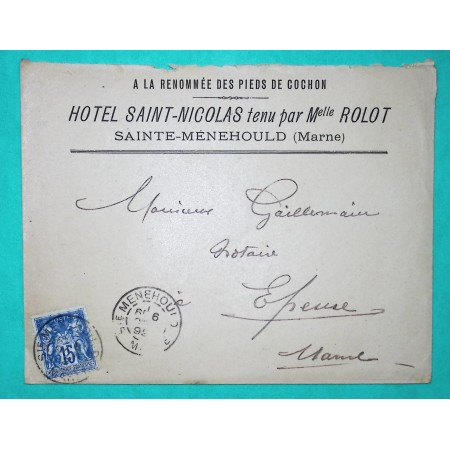 A LA RENOMMÉE DES PIEDS DE COCHON
HOTEL SAINT-NICOLAS tenu par Melle ROLOT
SAINTE-MÉNEHOULD (Marne)
Monsieur Gaillemain
Notaire
Epense
Marne
STE MENEHOULD
6
15